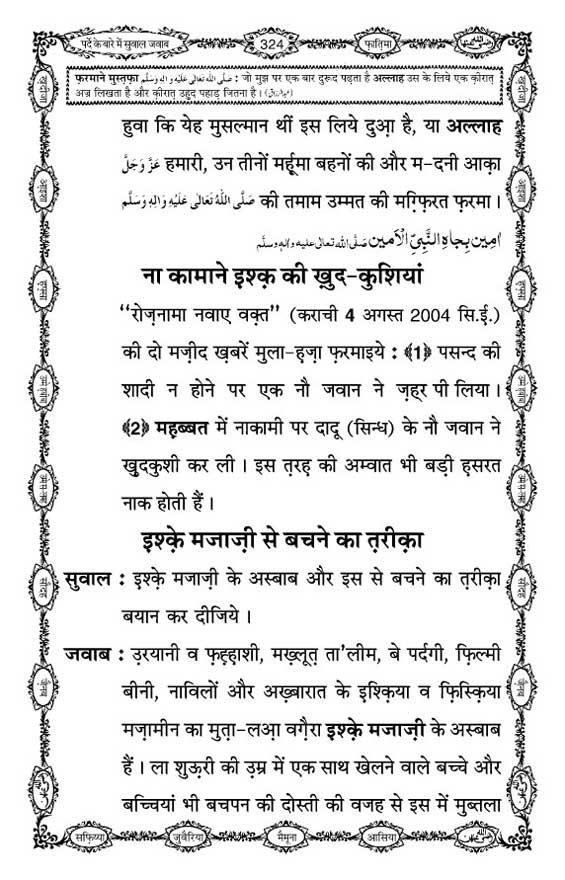 पर्दे के बारे में सुवाल जवाब
324
फ़ातिमा
फ़रमाने मुस्तफ़ा صَلَّى اللهُ تَعَالٰى عَلَيْهِ وَاٰلِهٖ وَسَلَّم : जो मुझ पर एक बार दुरूद पढ़ता है अल्लाह उस के लिये एक क़ीरात़
अज्र लिखता है और क़ीरात़ उह़ुद पहाड़ जितना है।
हुवा कि येह मुसल्मान थीं इस लिये दुआ़ है, या अल्लाह
عَزَّ وَجَلَّ हमारी, उन तीनों मर्हू़मा बहनों की और म-दनी आक़ा
صَلَّى اللهُ تَعَالٰى عَلَيْهِ وَاٰلِهٖ وَسَلَّم की तमाम उम्मत की मग़्फ़िरत फ़रमा।
اٰمِين بِجَاهِ النَّبِيِّ الْاَمين صَلَّى الله تعالى عليه واٰلهٖ وسلَّم
ना कामाने इश्क़ की ख़ुद-कुशियां
“रोज़नामा नवाए वक़्त” (कराची 4 अगस्त 2004 सि.ई.)
की दो मज़ीद ख़बरें मुला-ह़ज़ा फ़रमाइये : ﴾1﴿ पसन्द की
शादी न होने पर एक नौ जवान ने ज़ह्र पी लिया।
﴾2﴿ मह़ब्बत में नाकामी पर दादू (सिन्ध) के नौ जवान ने
ख़ुदकुशी कर ली। इस त़रह़ की अम्वात भी बड़ी ह़सरत
नाक होती हैं।
इश्क़े मजाज़ी से बचने का त़रीक़ा
सुवाल : इश्क़े मजाज़ी के अस्बाब और इस से बचने का त़रीक़ा
बयान कर दीजिये।
जवाब : उ़रयानी व फ़ह़्ह़ाशी, मख़्लूत़ ता'लीम, बे पर्दगी, फ़िल्मी
बीनी, नाविलों और अख़्बारात के इ़श्क़िया व फ़िस्क़िया
मज़ामीन का मुत़ा-लआ़ वग़ैरा इश्क़े मजाज़ी के अस्बाब
हैं। ला शुऊ़री की उ़म्र में एक साथ खेलने वाले बच्चे और
बच्चियां भी बचपन की दोस्ती की वजह से इस में मुब्तला
सफ़िय्या
जुवैरिया
मैमूना
आसिया